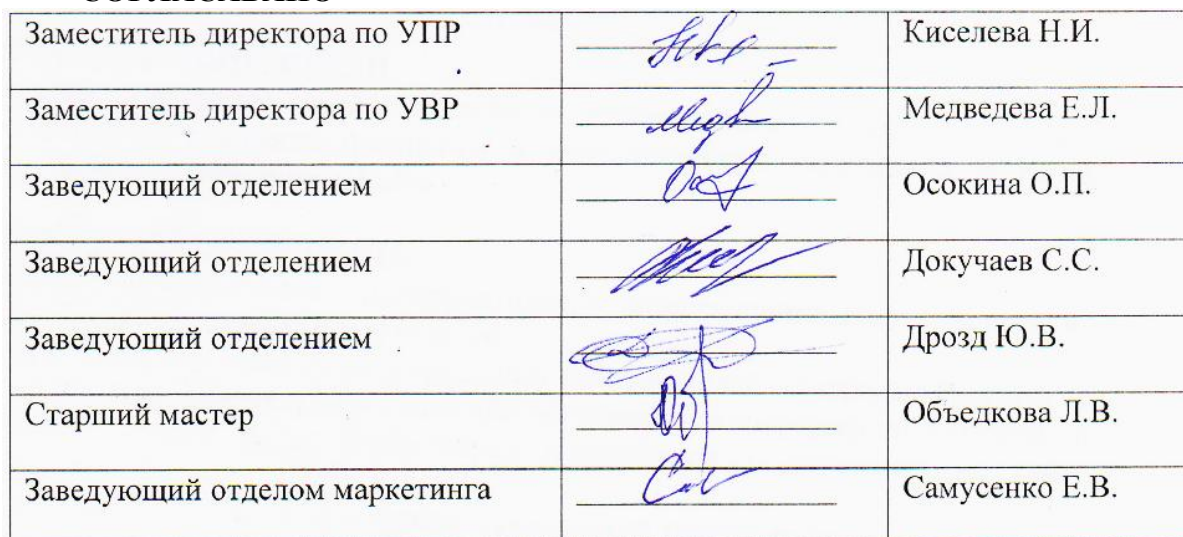 СОГЛАСОВАНО
Заместитель директора по УПР Киселева Н.И.
Заместитель директора по УВР Медведева Е.Л.
Заведующий отделением Осокина О.П.
Заведующий отделением Докучаев С.С.
Заведующий отделением Дрозд Ю.В.
Старший мастер Объедкова Л.В.
Заведующий отделом маркетинга Самусенко Е.В.